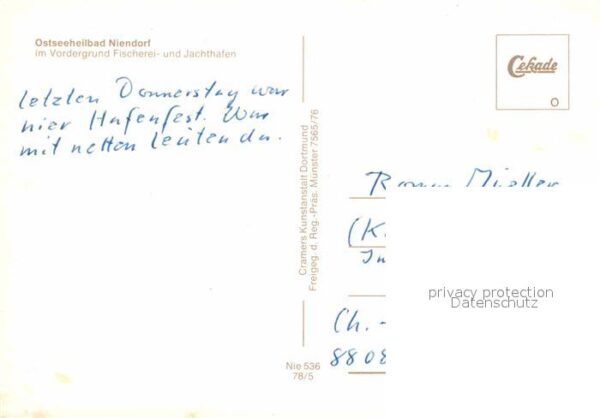 Ostseeheilbad Niendorf
im Vordergrund Fischerei- und Jachthafen
letzten Donnerstag war
hier Hafenfest. War
mit netten Leuten da.
Cramers Kunstanstalt Dortmund
Freigeg. d. Reg.-Präs. Münster 7565/76
Nie 536
78/5
Cekade
O
Müller
(K.
Ch. -
880
privacy protection
Datenschutz